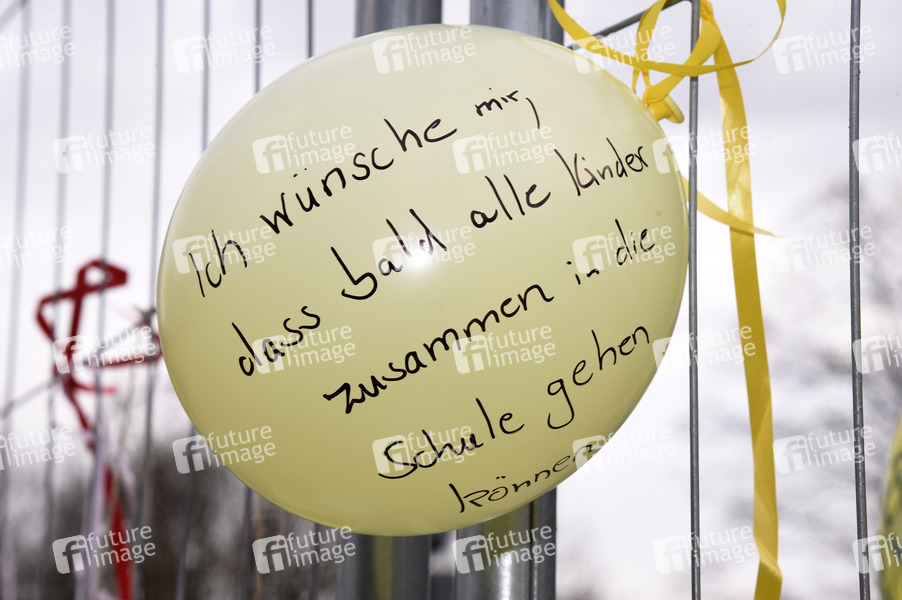 Ich wünsche mir,
dass bald alle Kinder
zusammen in die
Schule gehen
können